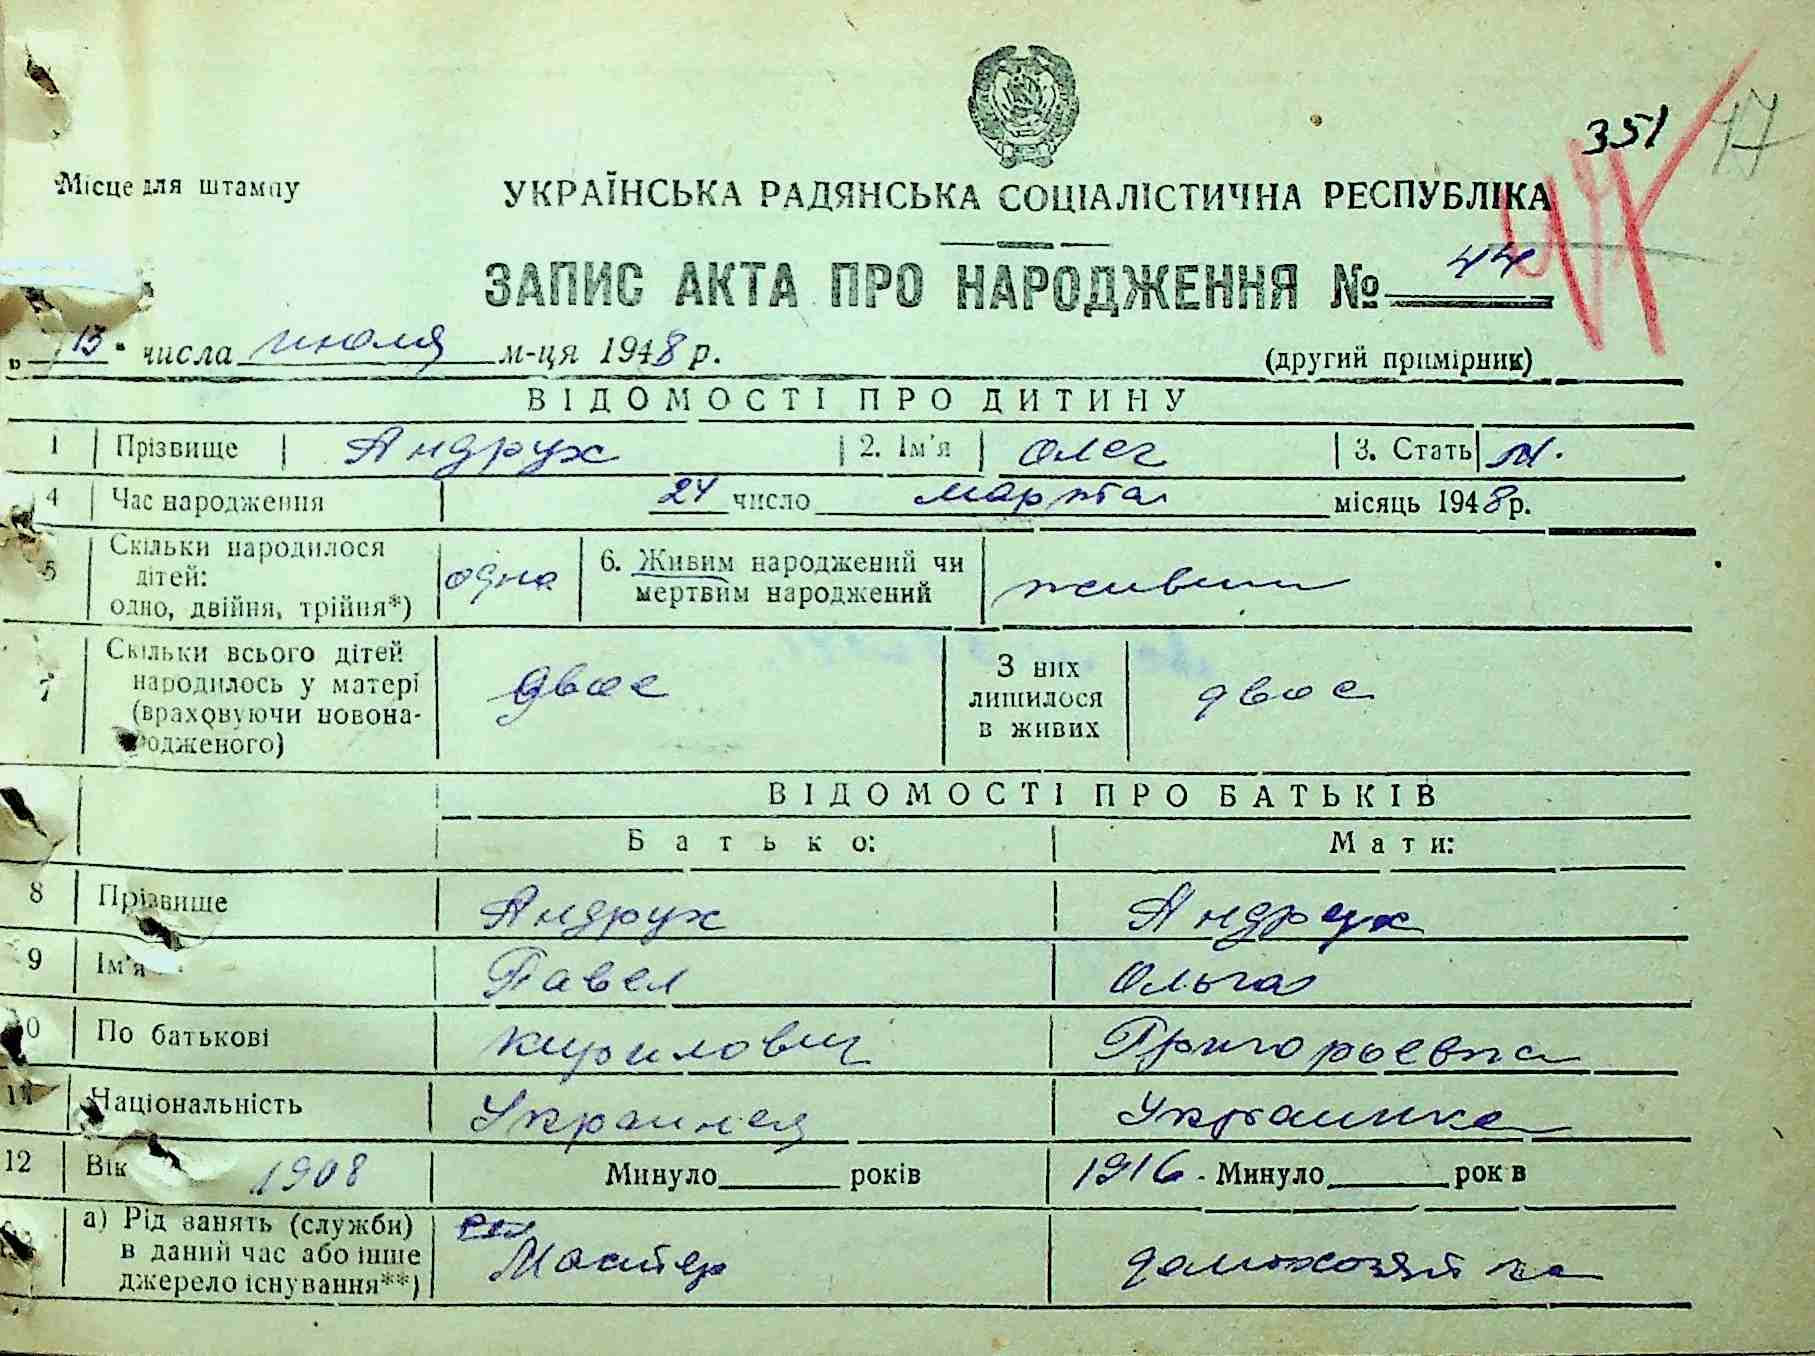 351 17
Місце для штампу
УКРАЇНСЬКА РАДЯНСЬКА СОЦІАЛІСТИЧНА РЕСПУБЛІКА
ЗАПИС АКТА ПРО НАРОДЖЕННЯ № 44
„13“ числа июля м-ця 1948 р.
(другий примірник)
ВІДОМОСТІ ПРО ДИТИНУ
1 Прізвище Андрух 2. Ім'я Олег 3. Стать М.
4 Час народження 24 число марта місяць 1948 р.
5 Скільки народилося дітей: одно, двійня, трійня*) одна 6. Живим народжений чи мертвим народжений живим
7 Скільки всього дітей народилось у матері (враховуючи новона-родженого) двое З них лишилося в живих двое
ВІДОМОСТІ ПРО БАТЬКІВ
Батько: Мати:
8 Прізвище Андрух Андрух
9 Ім'я Павел Ольга
10 По батькові Кирилович Григорьевна
11 Національність Украинец Украинка
12 Вік 1908 Минуло років 1916. Минуло років
а) Рід занять (служби) в даний час або інше джерело існування**) Мастер домохозяйка